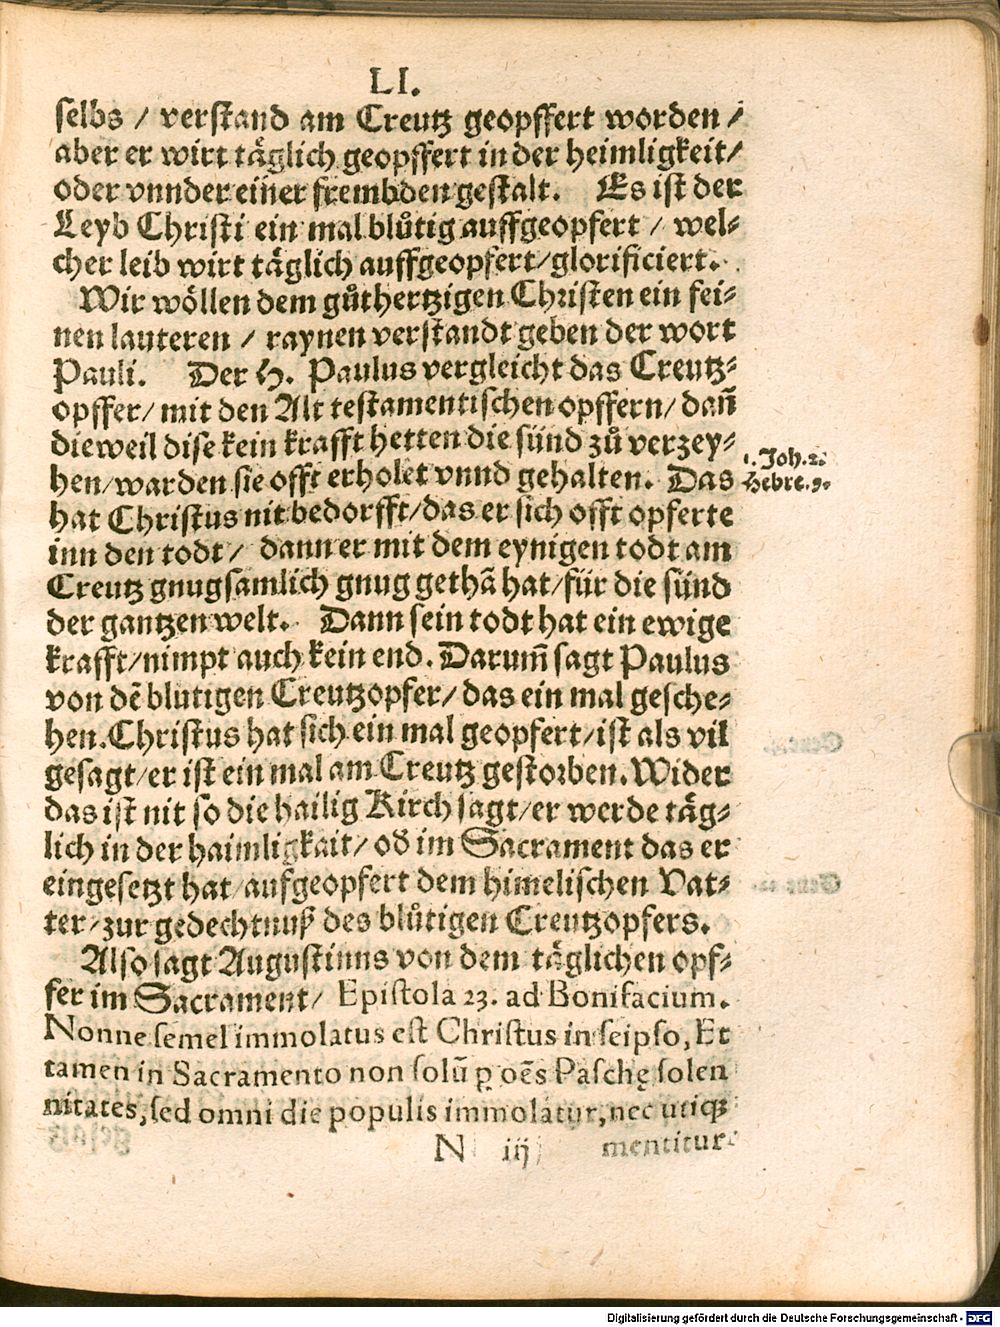 LI.
selbs / verstand am Creutz geopffert worden /
aber er wirt täglich geopffert in der heimligkeit/
oder vnnder einer frembden gestalt. Es ist der
Leyb Christi ein mal blůtig auffgeopfert / wel⸗
cher leib wirt täglich auffgeopfert/glorificiert.
Wir wöllen dem gůthertzigen Christen ein fei⸗
nen lauteren / raynen verstandt geben der wort
Pauli. Der H. Paulus vergleicht das Creutz⸗
opffer/ mit den Alt testamentischen opffern/ dañ
dieweil dise kein krafft hetten die sünd zů verzey⸗
hen/warden sie offt erholet vnnd gehalten. Das
1. Joh. 2.
Hebre. 9.
hat Christus nit bedorfft/das er sich offt opferte
inn den todt / dann er mit dem eynigen todt am
Creutz gnugsamlich gnug gethã hat/für die sünd
der gantzen welt. Dann sein todt hat ein ewige
krafft/nimpt auch kein end. Darum̃ sagt Paulus
von dẽ blutigen Creutzopfer/ das ein mal gesche⸗
hen. Christus hat sich ein mal geopfert/ist als vil
gesagt/er ist ein mal am Creutz gestorben. Wider
das ist nit so die hailig Kirch sagt/er werde täg⸗
lich in der haimligkait/ od im Sacrament das er
eingesetzt hat/aufgeopfert dem himelischen Vat⸗
ter/zur gedechtnuß des blůtigen Creutzopfers.
Also sagt Augustinus von dem täglichen opf⸗
fer im Sacrament/ Epistola 23. ad Bonifacium.
Nonne semel immolatus est Christus in seipso, Et
tamen in Sacramento non solũ ꝑ oẽs Paschę solen
nitates, sed omni die populis immolatur, nec utiqꝫ
N iij mentitur
Digitalisierung gefördert durch die Deutsche Forschungsgemeinschaft - DFG